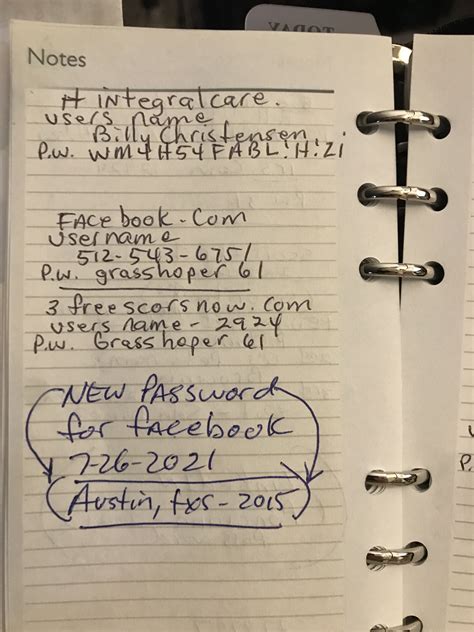 TODAY
Notes
# integralcare.
users name
Billy Christensen
P.W. WM4H54FABL!H!Zi
FACebook.Com
username
512-543-6751
P.w. grasshoper 61
3 freescorsnow.com
users name - 2924
P.w. Grasshoper 61
NEW PASSword
for facebook
7-26-2021
Austin, txs-2015
P.